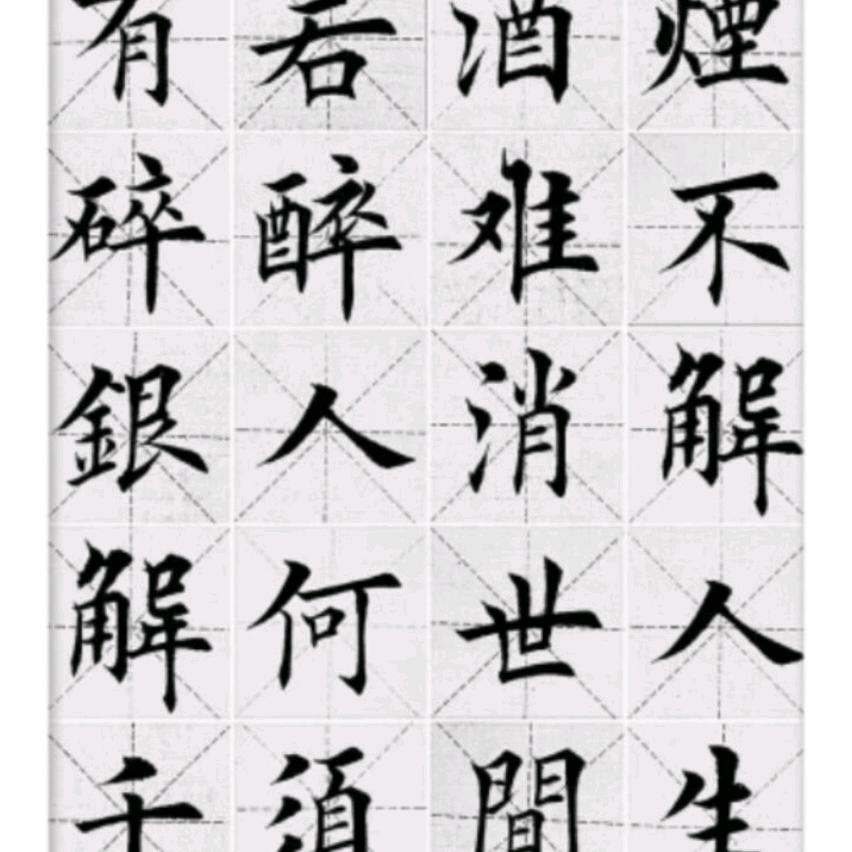 煙不解人生
酒难消世間
若醉人何須
有碎銀解千